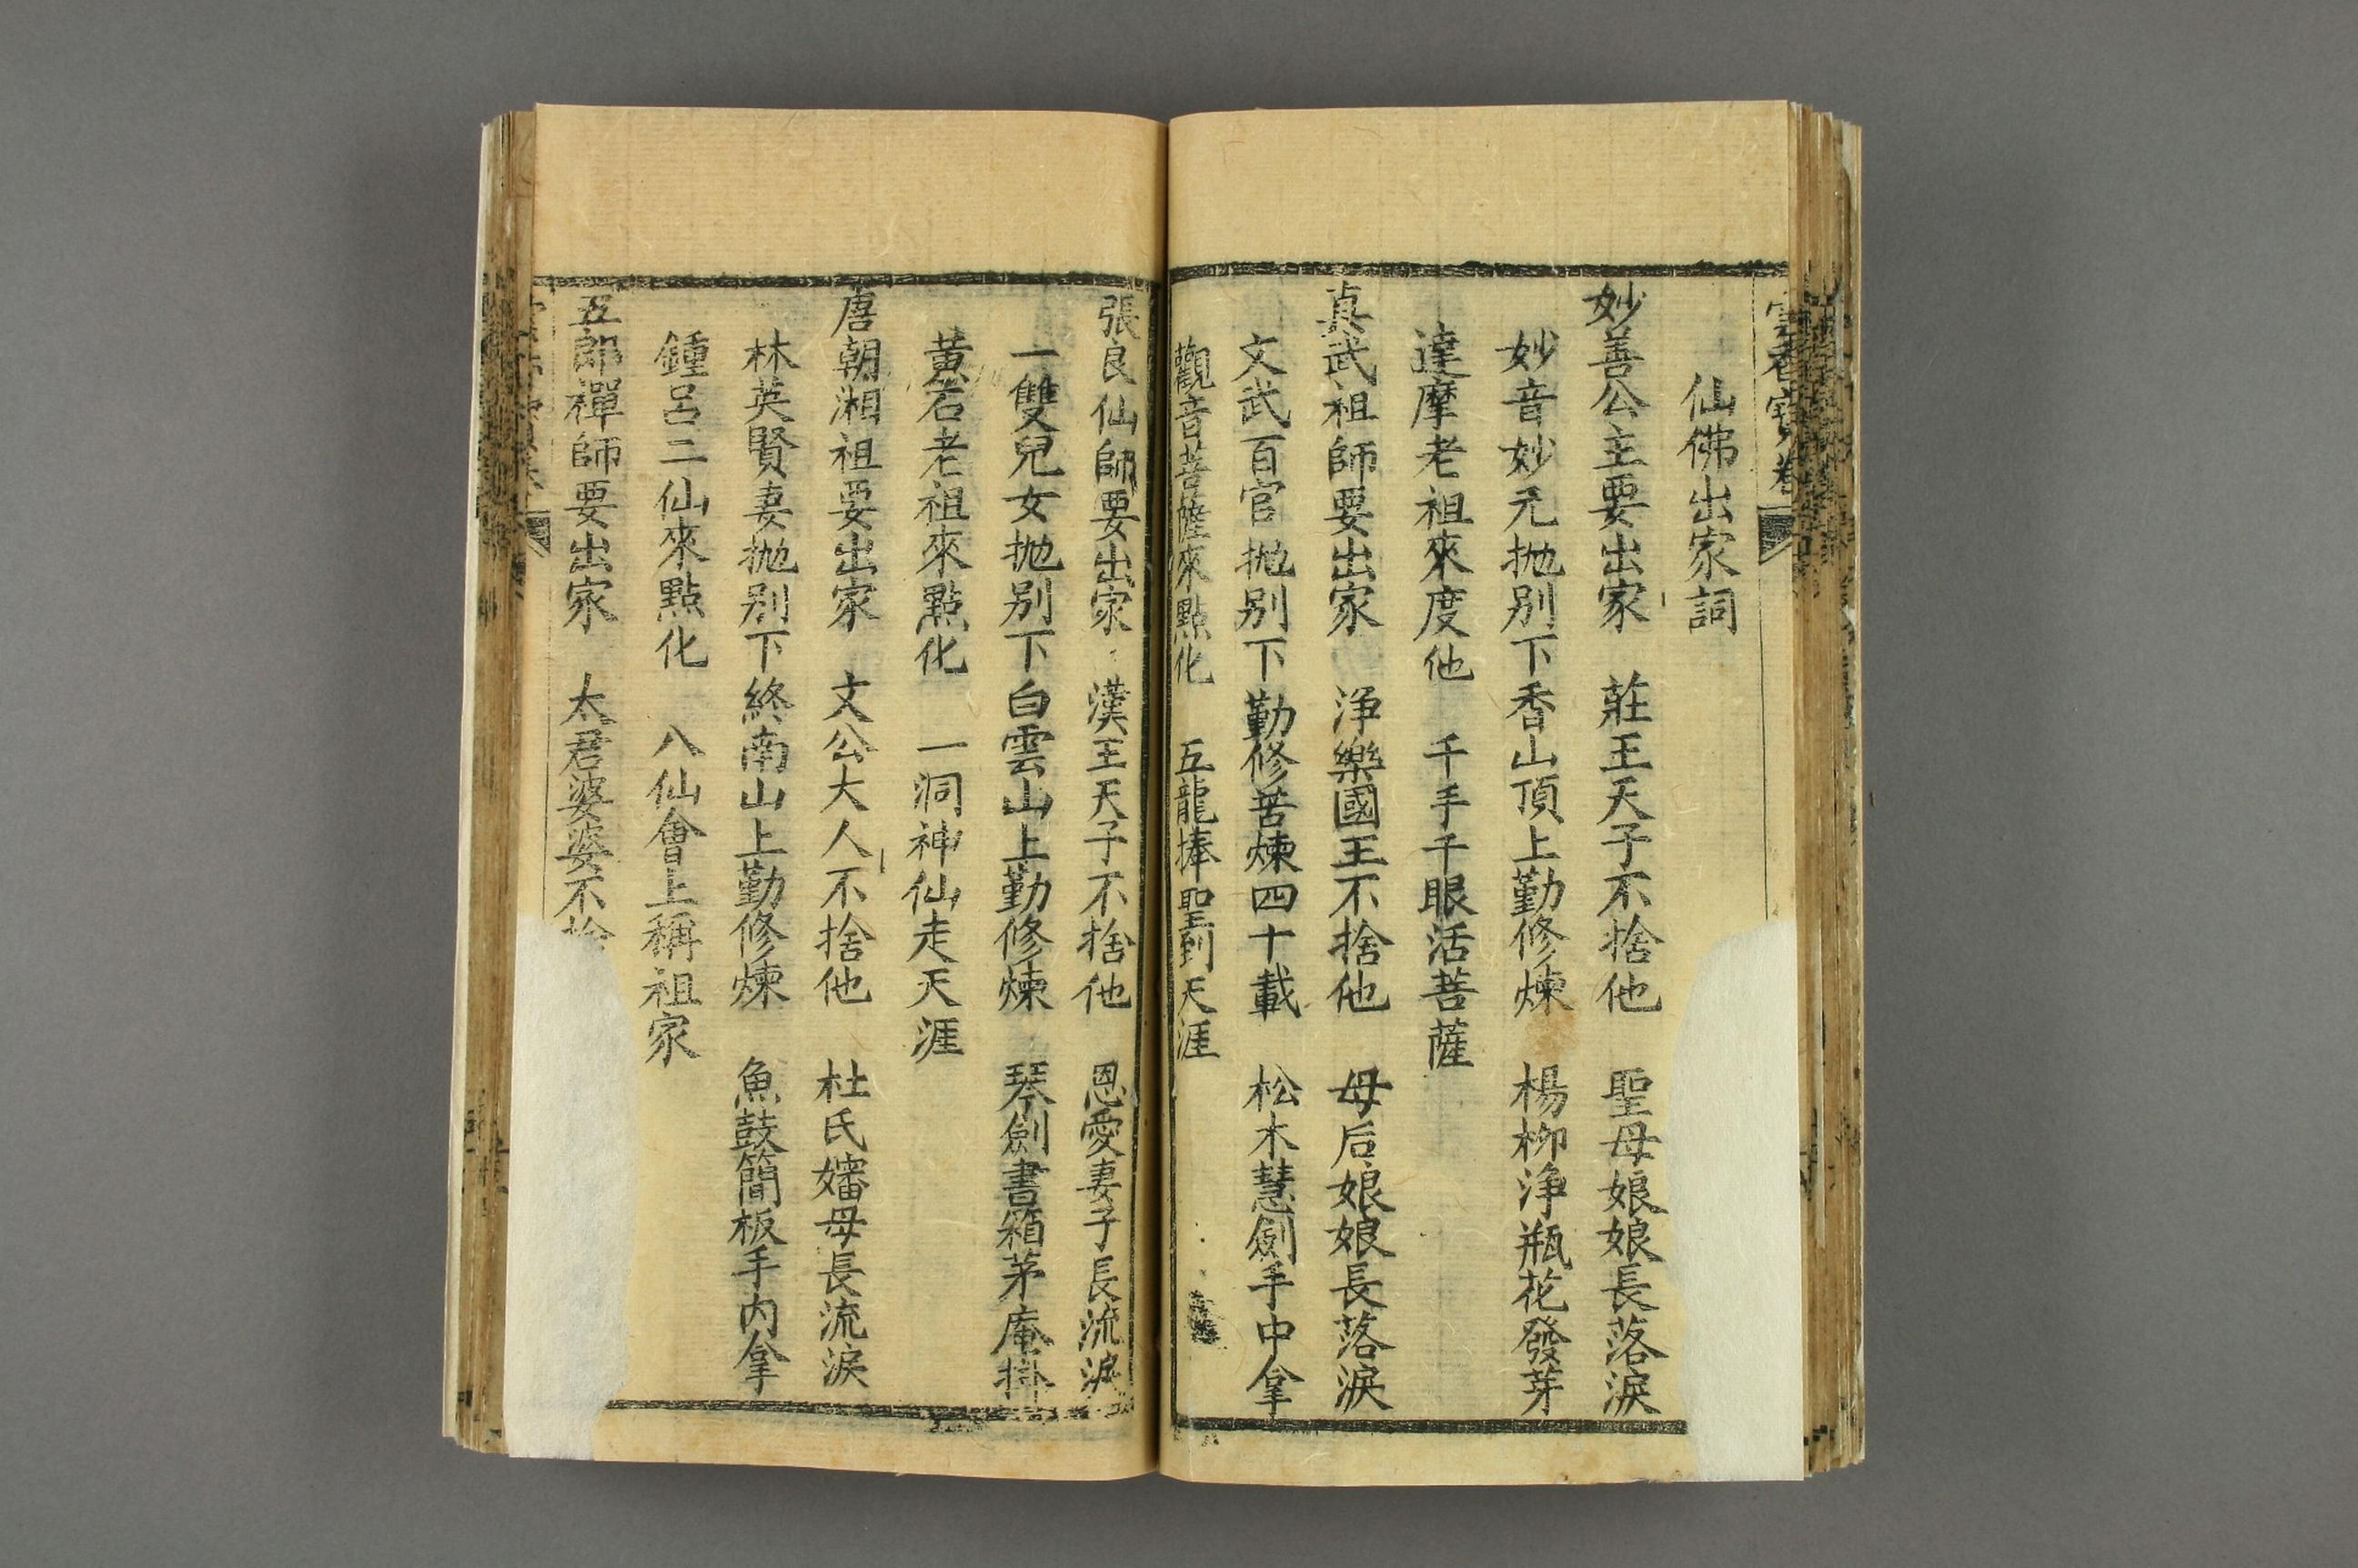 香寶卷
仙佛出家詞
妙善公主要出家　莊王天子不捨他　聖母娘娘長落淚
妙音妙元拋别下　香山頂上勤修煉　楊柳淨瓶花發芽
達摩老祖來度他　千手千眼活菩薩
真武祖師要出家　淨樂國王不捨他　母后娘娘長落淚
文武百官拋别下　勤修苦煉四十載　松木慧劍手中拿
觀音菩薩來點化　五龍捧聖到天涯
張良仙師要出家　漢王天子不捨他　恩愛妻子長流淚
一雙兒女拋别下　白雲山上勤修煉　琴劍書箱茅庵掛
黄石老祖來點化　一洞神仙走天涯
唐朝湘祖要出家　文公大人不捨他　杜氏嬸母長流淚
林英賢妻拋别下　終南山上勤修煉　魚鼓簡板手内拿
鍾呂二仙來點化　八仙會上稱祖家
五郎禪師要出家　太君婆婆不捨